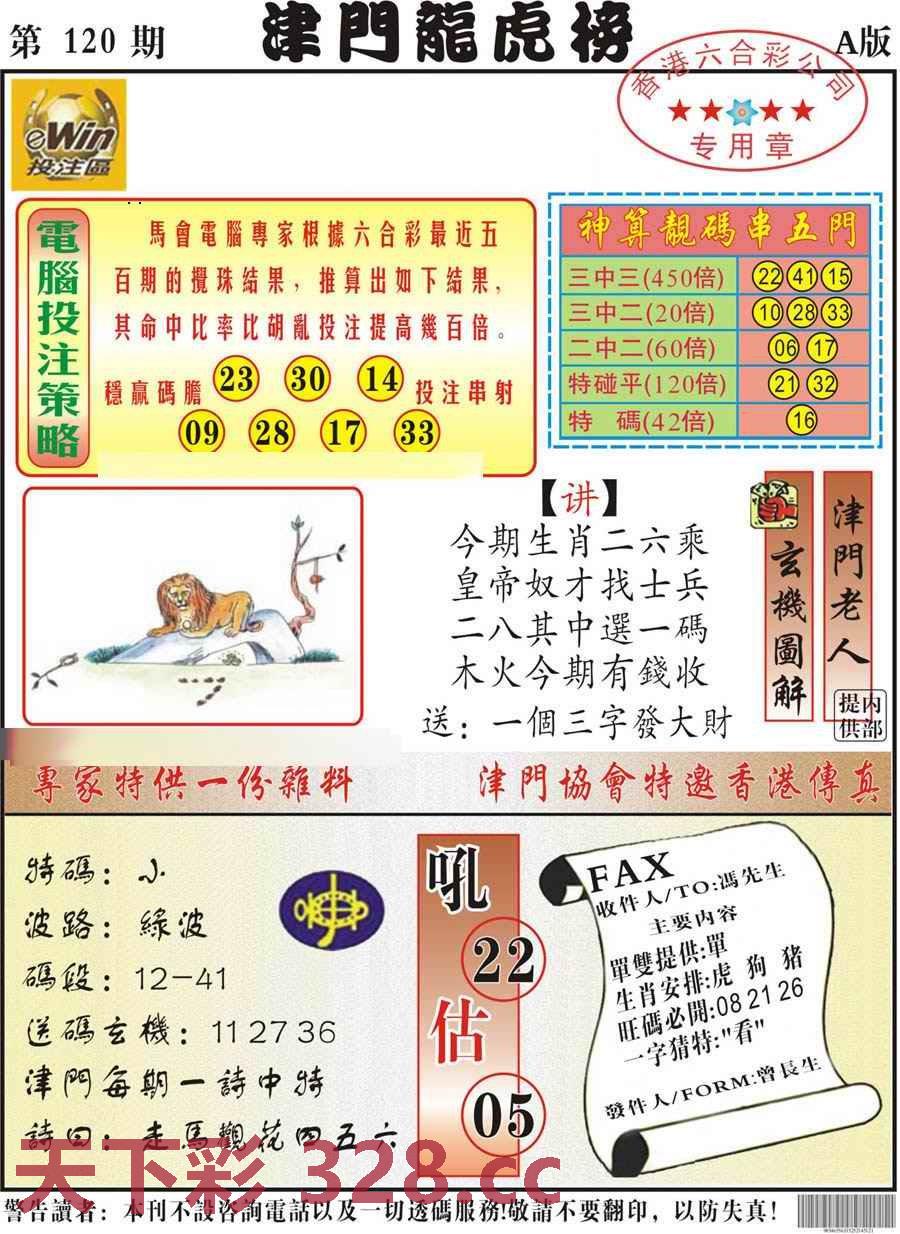 第 120 期
津門龍虎榜
A版
香港六合彩公司
专用章
eWin
投注區
電腦投注策略
馬會電腦專家根據六合彩最近五
百期的攪珠結果，推算出如下結果，
其命中比率比胡亂投注提高幾百倍。
穩贏碼膽 23 30 14 投注串射
09 28 17 33
神算靚碼串五門
三中三(450倍) 22 41 15
三中二(20倍) 10 28 33
二中二(60倍) 06 17
特碰平(120倍) 21 32
特 碼(42倍) 16
【讲】
今期生肖二六乘
皇帝奴才找士兵
二八其中選一碼
木火今期有錢收
送：一個三字發大財
玄機圖解
津門老人
内部提供
專家特供一份雜料
津門協會特邀香港傳真
特碼：小
波路：綠波
碼段：12－41
送碼玄機：11 27 36
津門每期一詩中特
詩曰：走馬觀花四五六
吼
22
估
05
FAX
收件人/TO:馮先生
主要内容
單雙提供:單
生肖安排:虎 狗 猪
旺碼必開:08 21 26
一字猜特:"看"
發件人/FORM:曾長生
天下彩 328.cc
警告讀者：本刊不設咨詢電話以及一切透碼服務!敬請不要翻印，以防失真！